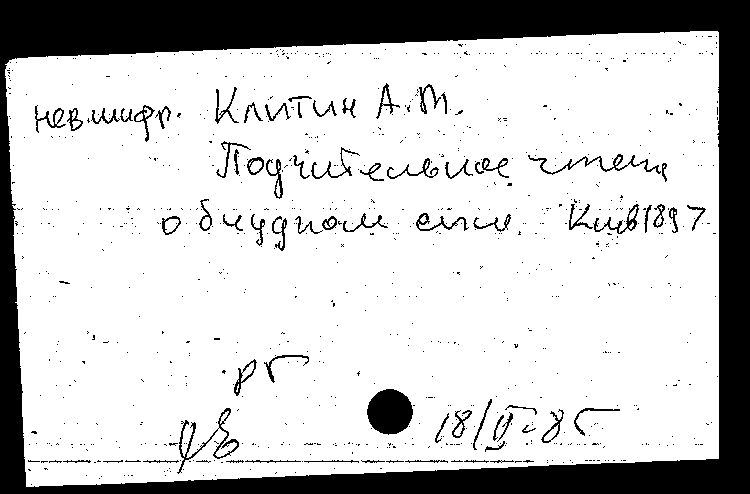 невшифр. Клитин А.М.
Поучительное чтени
о блудном сыне Киев 1897
рг
18/VI-85